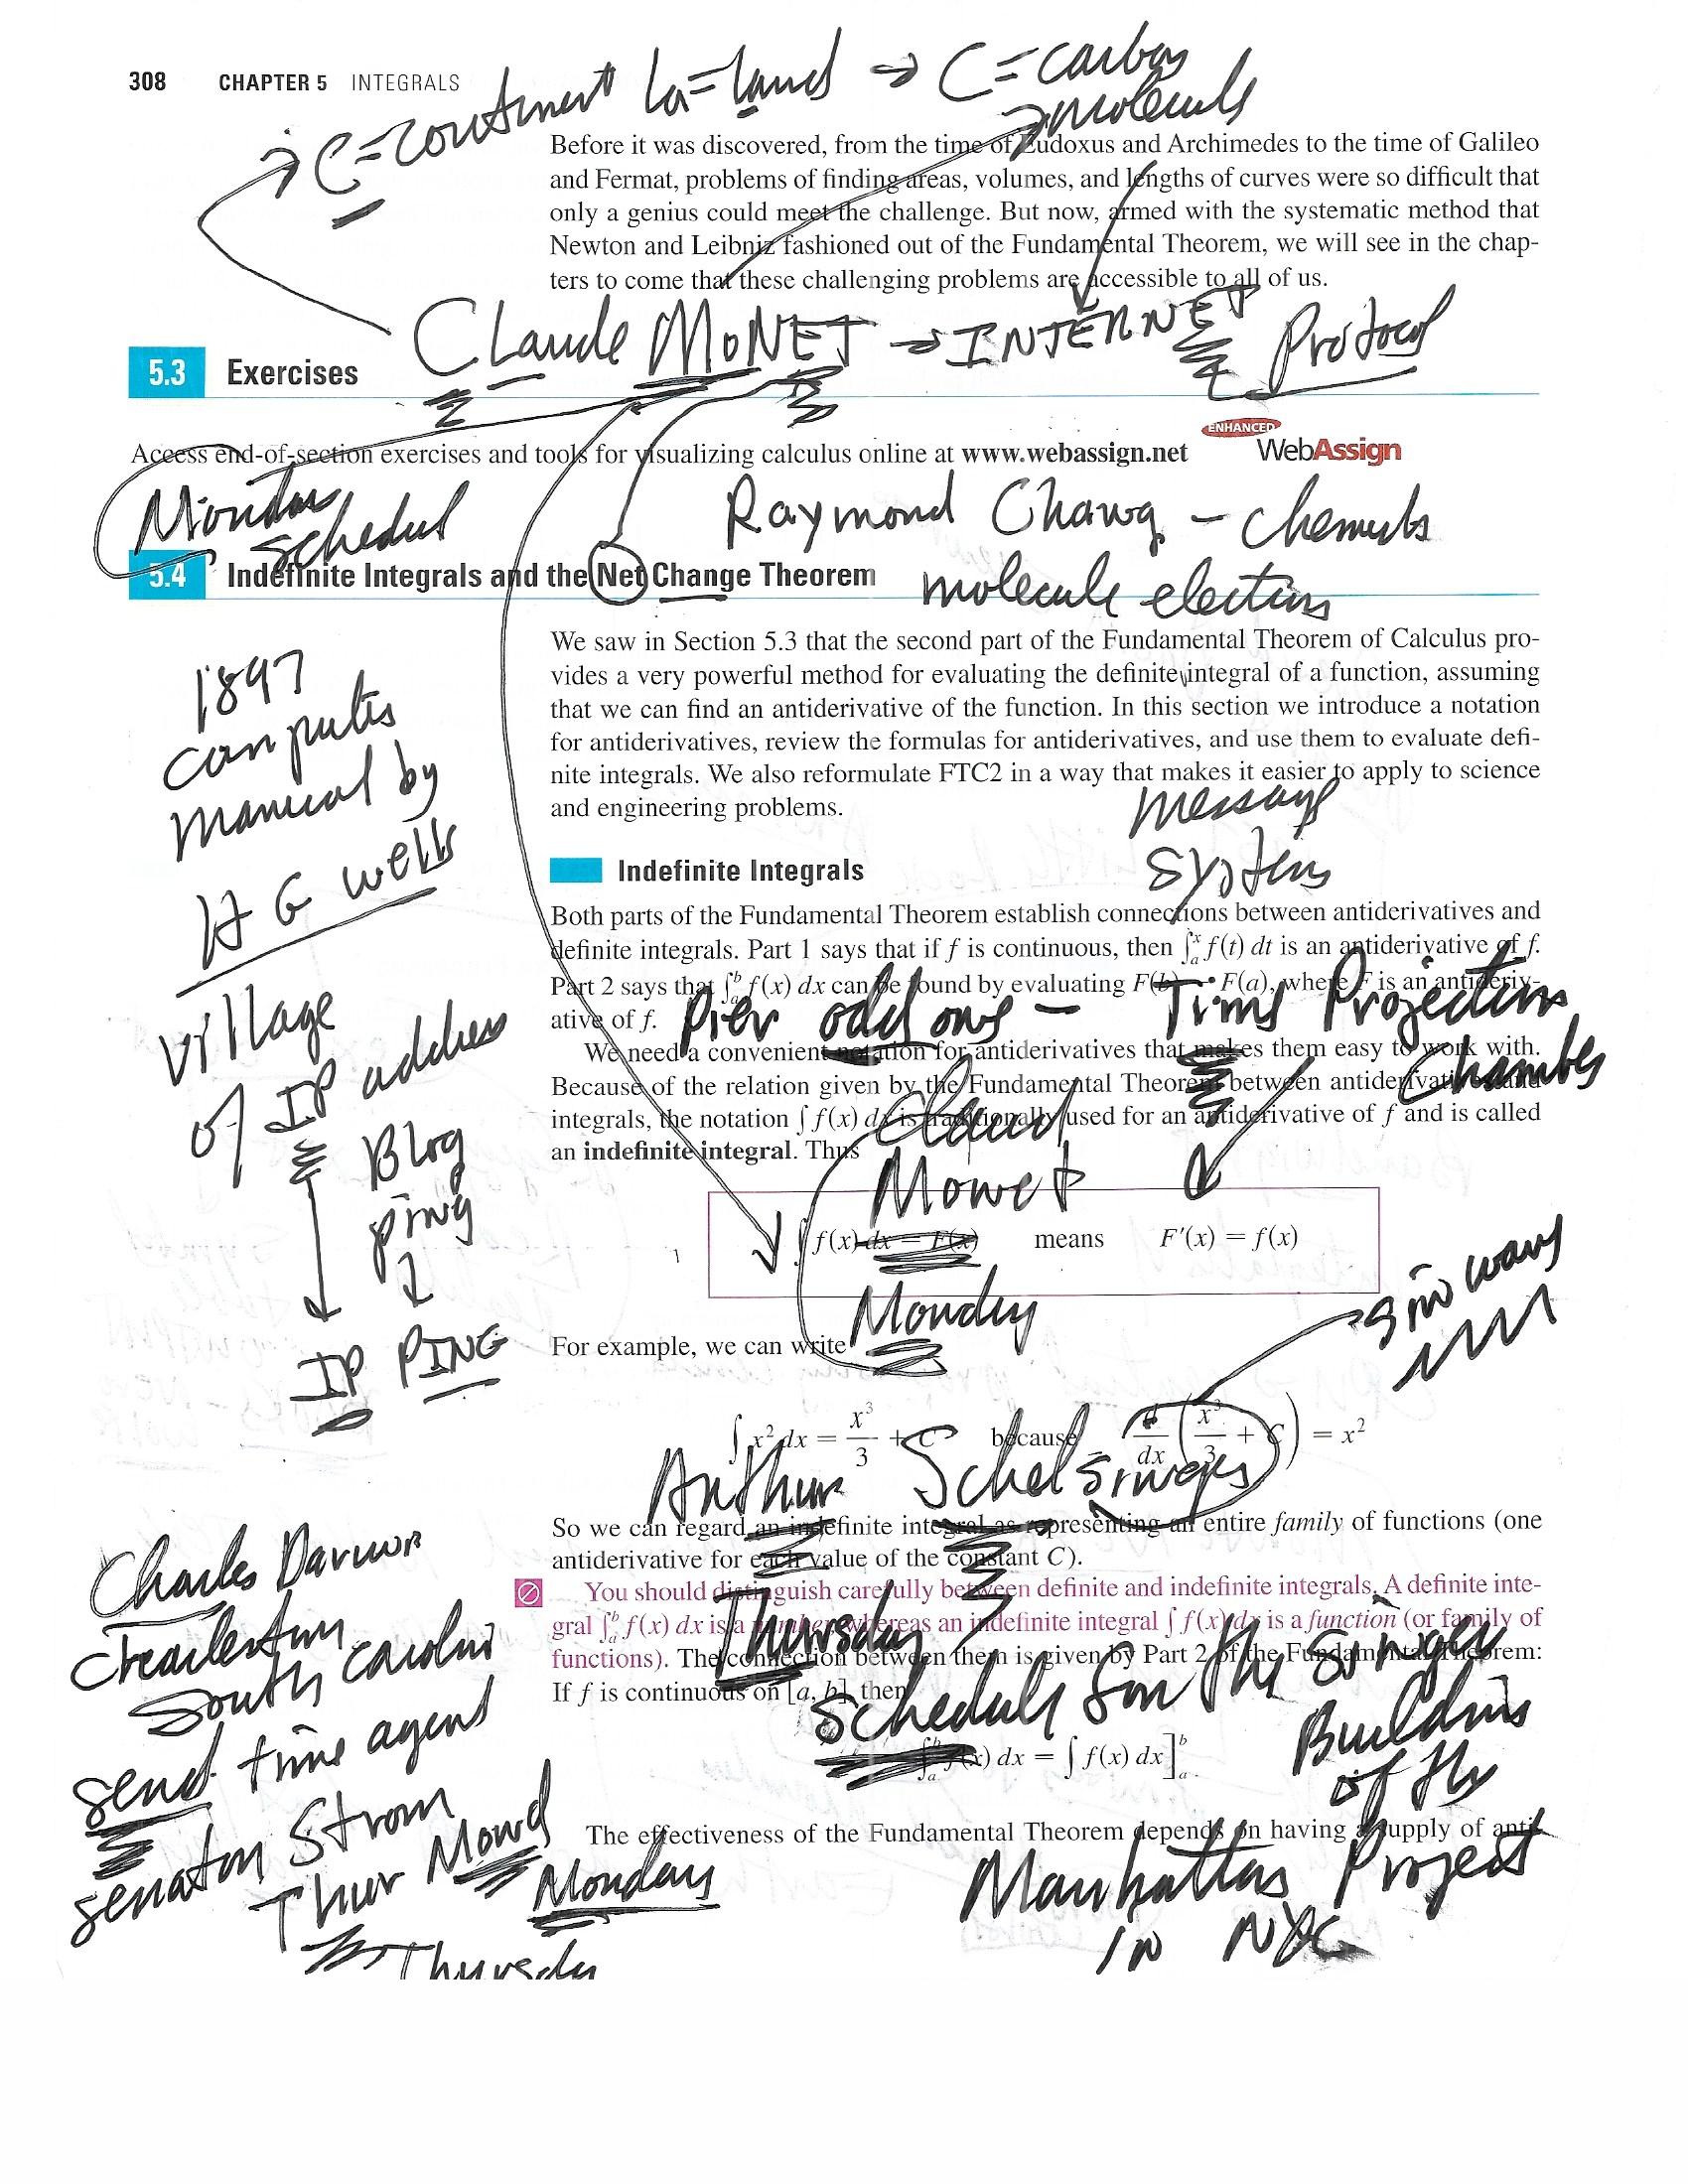 308 CHAPTER 5 INTEGRALS
C = continent La = Land → C = carbon
→ molecule
Before it was discovered, from the time of Eudoxus and Archimedes to the time of Galileo
and Fermat, problems of finding areas, volumes, and lengths of curves were so difficult that
only a genius could meet the challenge. But now, armed with the systematic method that
Newton and Leibniz fashioned out of the Fundamental Theorem, we will see in the chap-
ters to come that these challenging problems are accessible to all of us.
CLaude MoNET → INTERNET Protocol
5.3 Exercises
Access end-of-section exercises and tools for visualizing calculus online at www.webassign.net
ENHANCED
WebAssign
schedul
Raymond Chang -
5.4 Indefinite Integrals and the Net Change Theorem
molecule
We saw in Section 5.3 that the second part of the Fundamental Theorem of Calculus pro-
vides a very powerful method for evaluating the definite integral of a function, assuming
that we can find an antiderivative of the function. In this section we introduce a notation
for antiderivatives, review the formulas for antiderivatives, and use them to evaluate defi-
nite integrals. We also reformulate FTC2 in a way that makes it easier to apply to science
and engineering problems.
1897
computer
manual by
H G wells
village
of IP address
Blog
ping
IP PING
message
system
Indefinite Integrals
Both parts of the Fundamental Theorem establish connections between antiderivatives and
definite integrals. Part 1 says that if f is continuous, then ∫ₐˣ f(t) dt is an antiderivative of f.
Part 2 says that ∫ₐᵇ f(x) dx can be found by evaluating F(b) − F(a), where F is an antideriv-
ative of f.
Pier odd ows - Time Projection
Chamber
We need a convenient notation for antiderivatives that makes them easy to work with.
Because of the relation given by the Fundamental Theorem between antiderivatives and
integrals, the notation ∫ f(x) dx is traditionally used for an antiderivative of f and is called
an indefinite integral. Thus
Claud
Monet
1 ∫ f(x) dx = F(x) means F′(x) = f(x)
Monday
sin wave
For example, we can write
∫ x² dx = x³/3 + C because d/dx (x³/3 + C) = x²
Arthur Schelsinger
So we can regard an indefinite integral as representing an entire family of functions (one
antiderivative for each value of the constant C).
You should distinguish carefully between definite and indefinite integrals. A definite inte-
gral ∫ₐᵇ f(x) dx is a number, whereas an indefinite integral ∫ f(x) dx is a function (or family of
functions). The connection between them is given by Part 2 of the Fundamental Theorem:
If f is continuous on [a, b], then
Thursday
Schedule for the singer
Building
of the
Manhattan Project
in NYC
∫ₐᵇ f(x) dx = ∫ f(x) dx]ₐᵇ
The effectiveness of the Fundamental Theorem depends on having a supply of anti-
Charles Darwin
South
send time agent
senator Strom
Thur Mond
Monday
Thursday